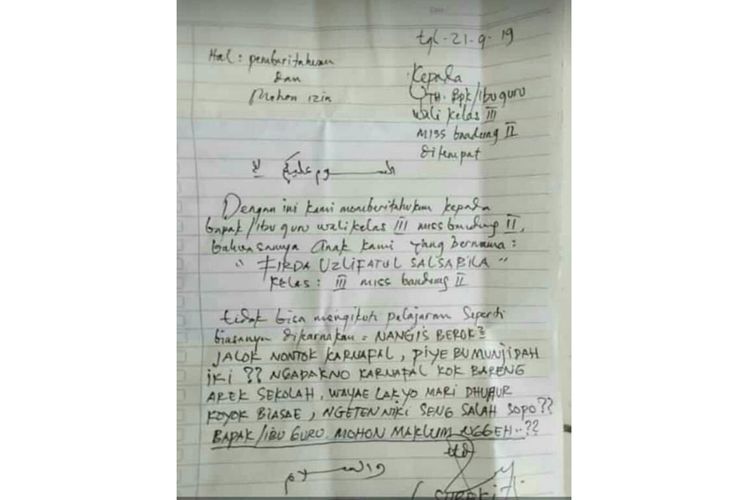 tgl - 21 - 9 - 19
Hal : pemberitahuan
dan
Mohon izin
Kepada
YTH. Bpk/ibu guru
wali kelas III
MISS bandung II
ditempat
السـلام عليكم
Dengan ini kami memberitahukan kepada
bapak/ibu guru wali kelas III miss bandung II,
bahwasannya anak kami yang bernama :
" FIRDA UZLIFATUL SALSABILA "
Kelas : III miss bandung II
tidak bisa mengikuti pelajaran seperti
biasanya dikarnakan = NANGIS BEROK2
JALOK NONTOK KARNAFAL, PIYE BU MUNJIDAH
IKI ?? NGADAKNO KARNAFAL KOK BARENG
AREK SEKOLAH, WAYAE LAK YO MARI DHUHUR
KOYOK BIASAE, NGETEN NIKI SENG SALAH SOPO ??
BAPAK/IBU GURU. MOHON MAKLUM NGGEH..??
ttd
والسـلام